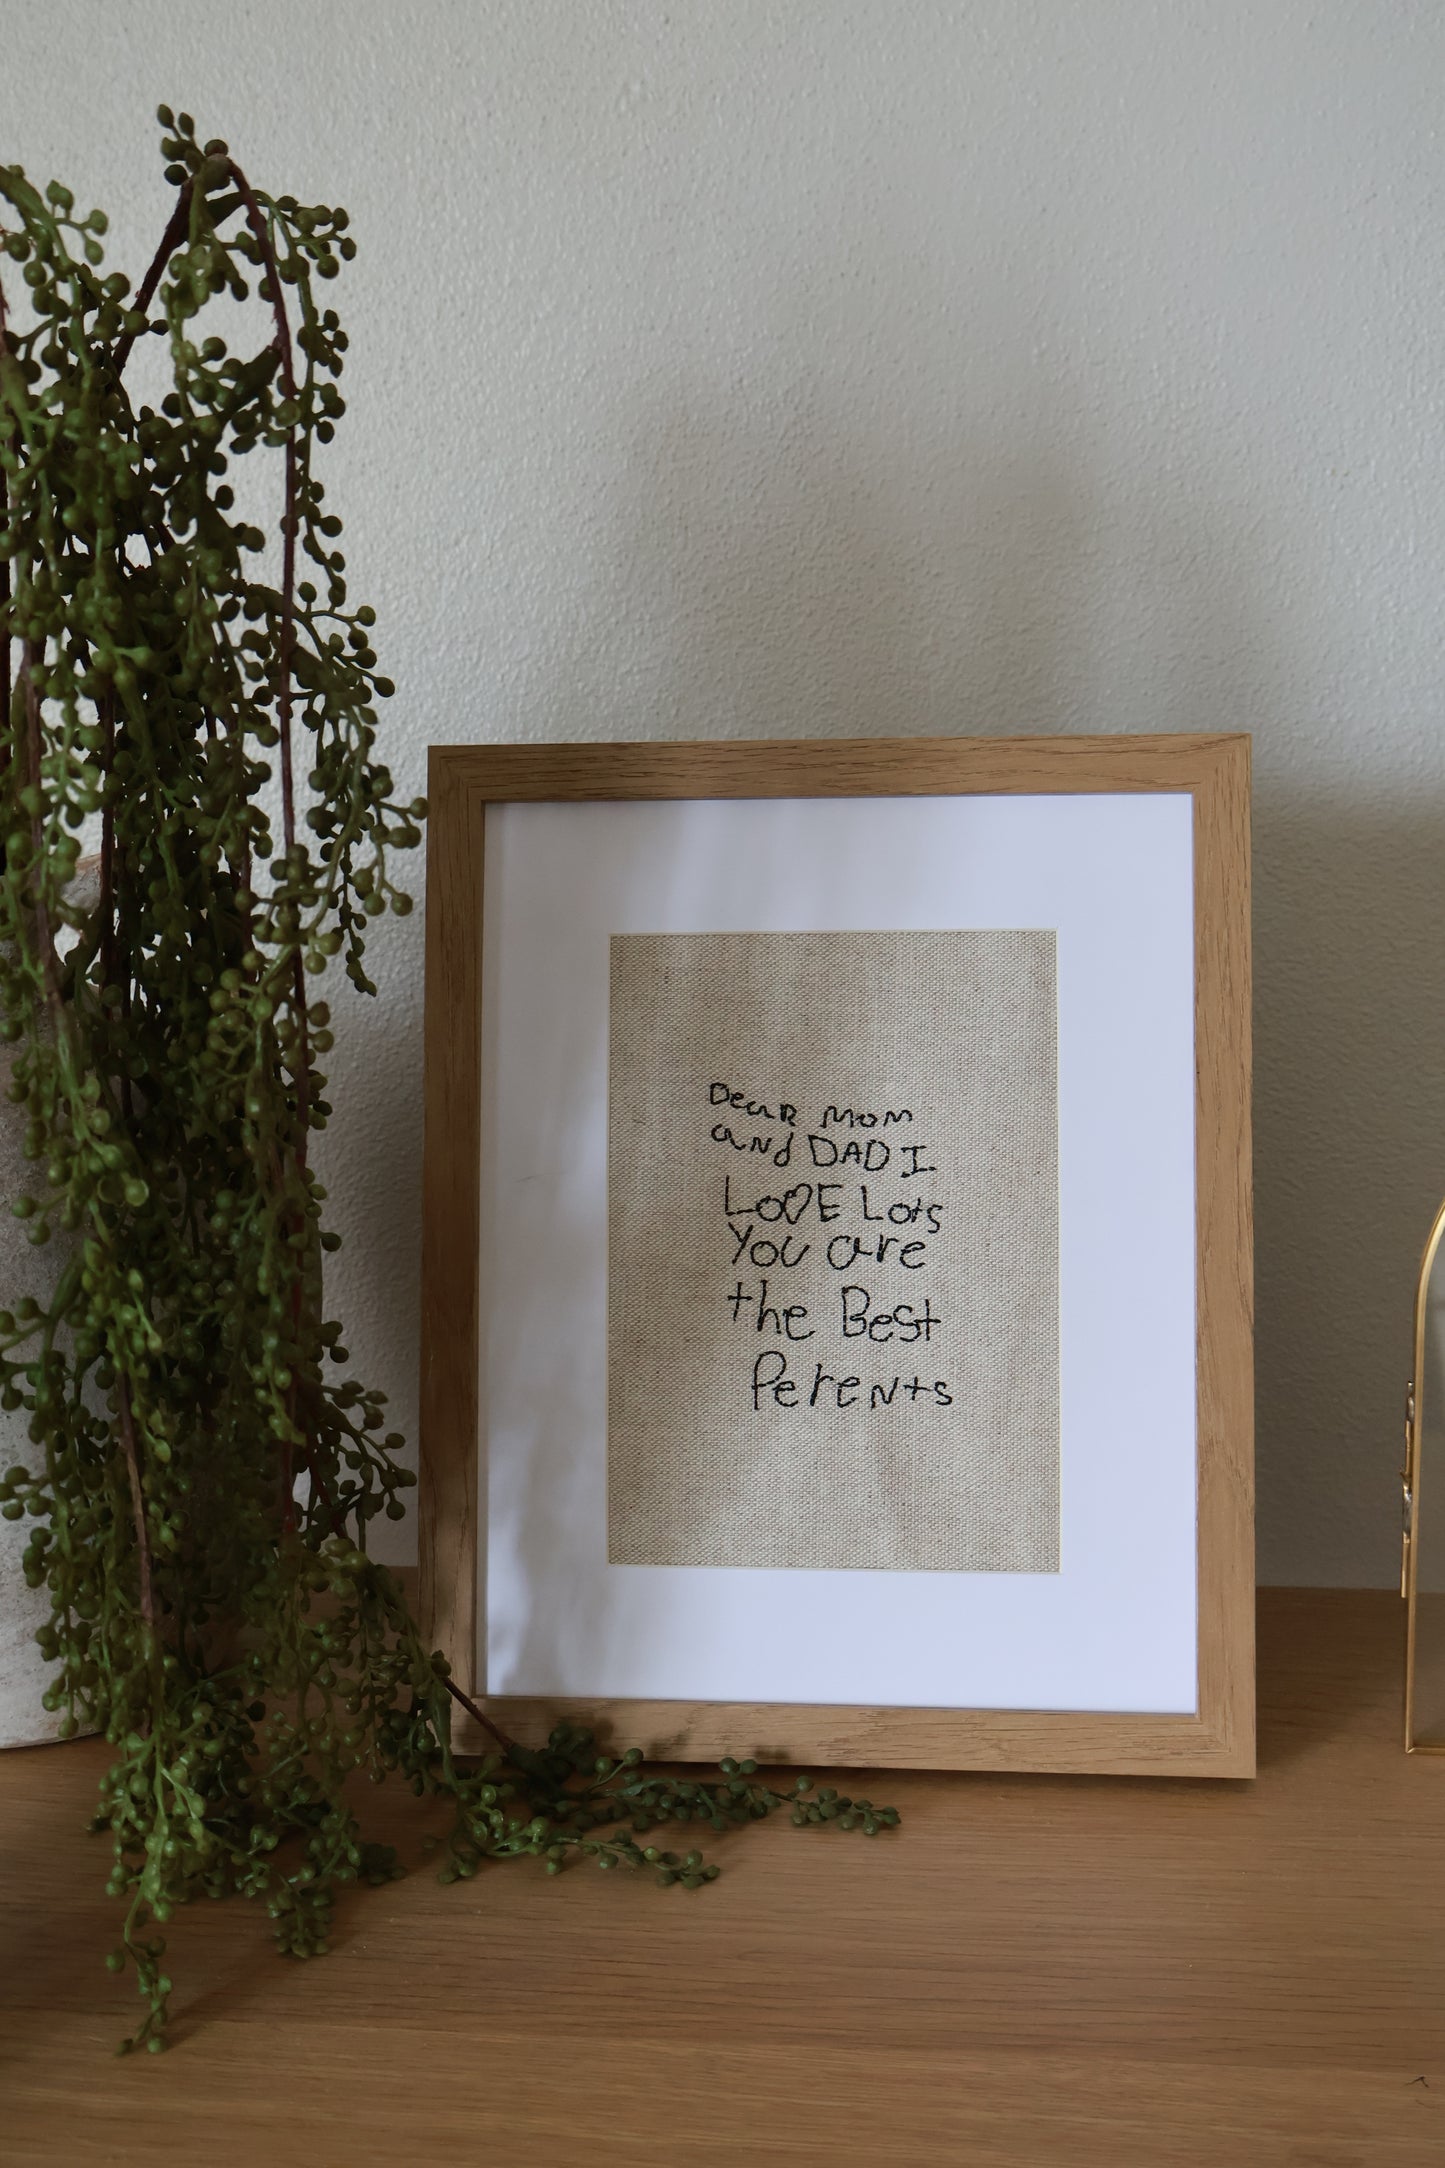 Dear Mom
and DAD I
LoVE Lots
You are
the Best
Perents